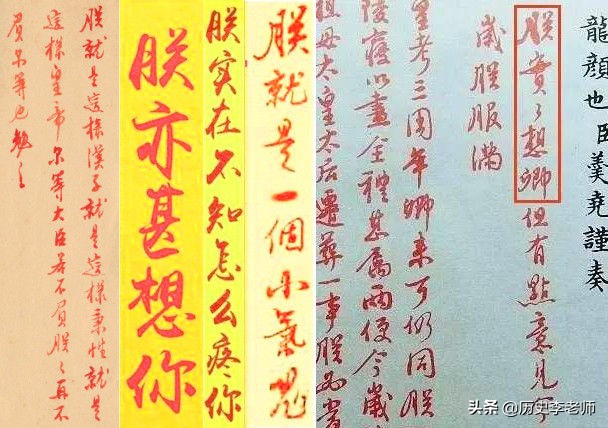 朕就是這樣漢子就是這樣秉性就是
這樣皇帝尔等大臣若不負朕々再不
負尔等也勉之
朕亦甚想你
朕实在不知怎么疼你
朕就是一個小氣鬼
龍顔也臣羹堯謹奏
朕實々想卿但有點意見今
歲朕服滿
皇考三周年卿来可仍同朕
陵寢以盡全禮甚屬兩便今歲
祖母太皇太后遷葬一事朕
头条 @历史李老师